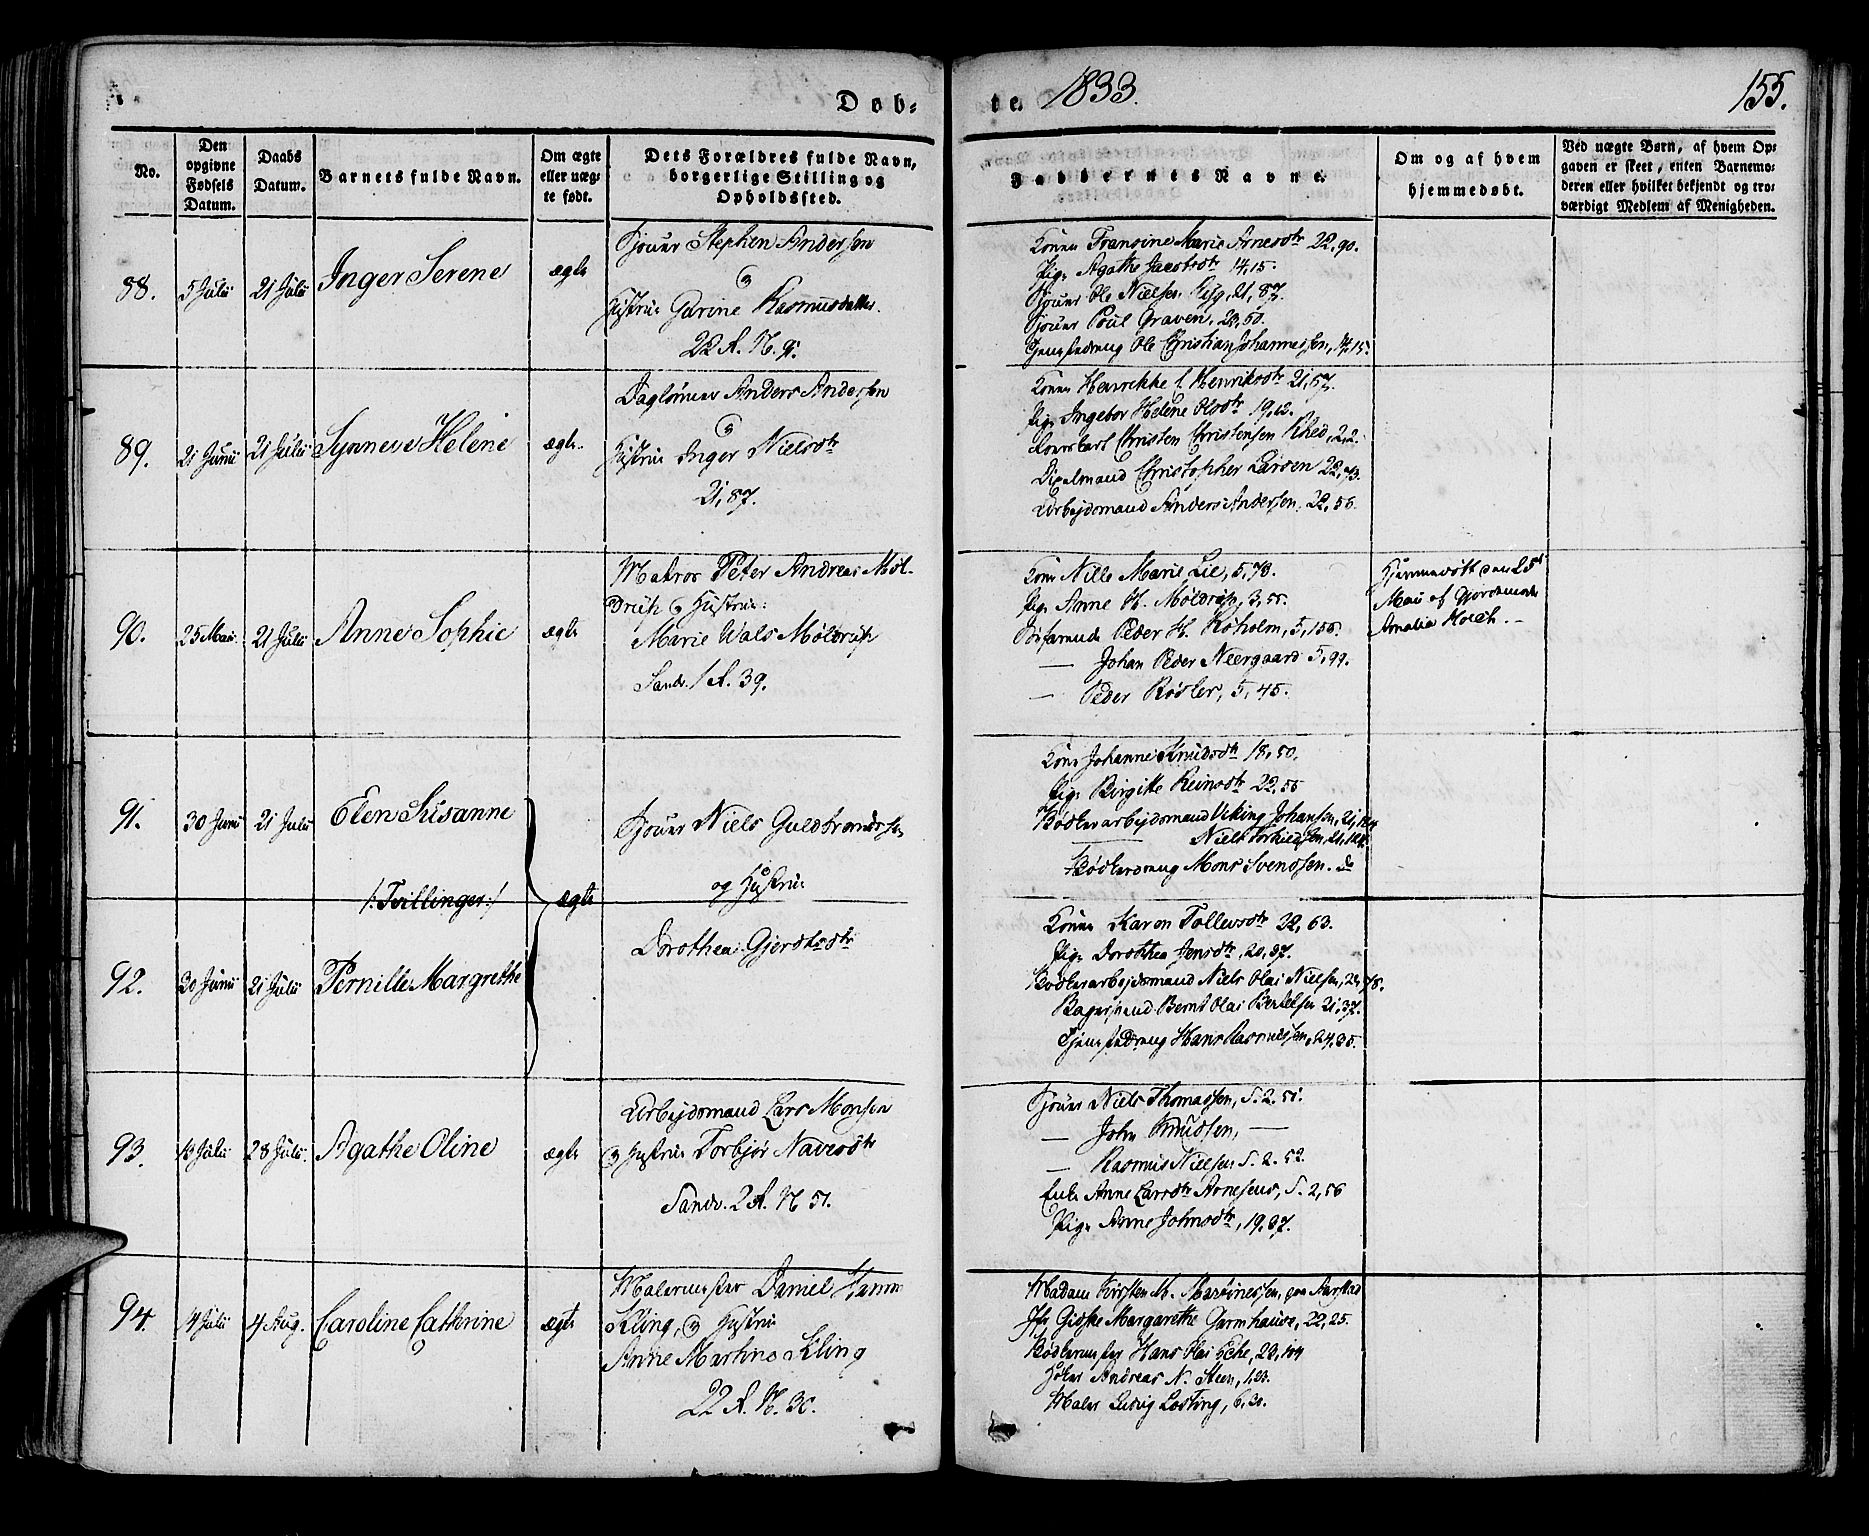 Døb-
te. 1833.
155.
No.
Den opgivne Fødsels Datum.
Daabs Datum.
Barnets fulde Navn.
Om ægte eller uægte født.
Dets Forældres fulde Navn, borgerlige Stilling og Opholdssted.
Faddernes Navne.
Om og af hvem hjemmedøbt.
Ved uægte Børn, af hvem Opgaven er skeet, enten Barnemoderen eller hvilket bekjendt og troværdigt Medlem af Menigheden.
88.
5 Julii
21 Julii
Inger Serene
ægte
Sjouer Stephen Andersen
og
Hustrue Gurine Rasmusdatter.
22 R. N. 9.
Kone Fransine Marie Arnesdtr 22, 90.
Pige Agathe Jacobsdtr 14, 15.
Sjouer Ole Nielsen 21, 87.
Sjouer Poul Graven, 23, 50.
Tjenestedreng Ole Christian Johannessen, 14, 15.
89.
21 Junii
21 Julii
Synneve Helene
ægte
Daglønner Anders Andersen
og
Hustrue Inger Nielsdtr
21, 87.
Kone Henrikke Henriksdtr 21, 57.
Pige Ingebor Helene Olsdtr 19, 12.
Christen Christensen 2, 2.
Christopher Larsen 22, 73.
Arbejdsmand Anders Andersen, 22, 56.
90.
25 Mai
21 Julii
Anne Sophie
ægte
Matros Peter Andreas Møl-
drup og Hustrue
Marie Wals Møldrup
Sandv. 1 R. 39.
Kone Nille Marie Lie, 5, 73.
Pige Anne H. Møldrup, 3, 55.
Søfarende Peder H. Roholm, 5, 156.
— Johan Peder Neergaard 5, 99.
— Peder Rødler, 5, 45.
Hjemmedøbt den 25de
Mai af Gjordemoder
Amalia Koch.
91.
30 Junii
21 Julii
Elen Susanne
/: Tvillinger :/
ægte
Sjouer Niels Guldbrandsen
og Hustrue
Dorothea Gjerdtsdtr
Kone Johanne Knudsdtr 18, 50.
Pige Birgitte Reinsdtr 22, 56
Bødkerarbejdsmand Viking Johansen, 21, 124
— Niels Torkildsen, 21, 124.
Bødkerdreng Mons Svendsen. do
92.
30 Junii
21 Julii
Pernille Margrethe
Kone Karen Tollevsdtr 22, 63.
Pige Dorothea Jensdtr, 20, 37.
Bødkerarbejdsmand Niels Olai Nielsen, 21, 78.
Bagersvend Bernt Olai Bertelsen 21, 37.
Tjenestedreng Hans Rasmussen, 24, 35.
93.
13 Julii
28 Julii
Agathe Oline
ægte
Arbejdsmand Lars Monsen
og Hustrue Torbjør Navesdtr
Sandv. 2 R. N 51.
Sjouer Niels Thomassen, S. 2. 51.
— John Knudsen, —
— Rasmus Nielsen S. 2. 52.
Enke Anne Larsdtr Arnesens, S. 2, 56
Pige Anne Johnsdtr, 19, 37.
94.
14 Julii
4 Aug.
Caroline Cathrine
ægte
Malermester Daniel Hamm
Kling, og Hustrue
Anne Martine Kling
22 R. N. 30.
Madam Kirsten M. Martinessen, paa Aarstad
Jfr Gidske Margarethe Garmhause, 22, 25.
Bødkermester Hans Olai Eche, 22, 104
Høker Andreas N. Steen, 1, 23.
Maler Ludvig Losting, 6, 30.